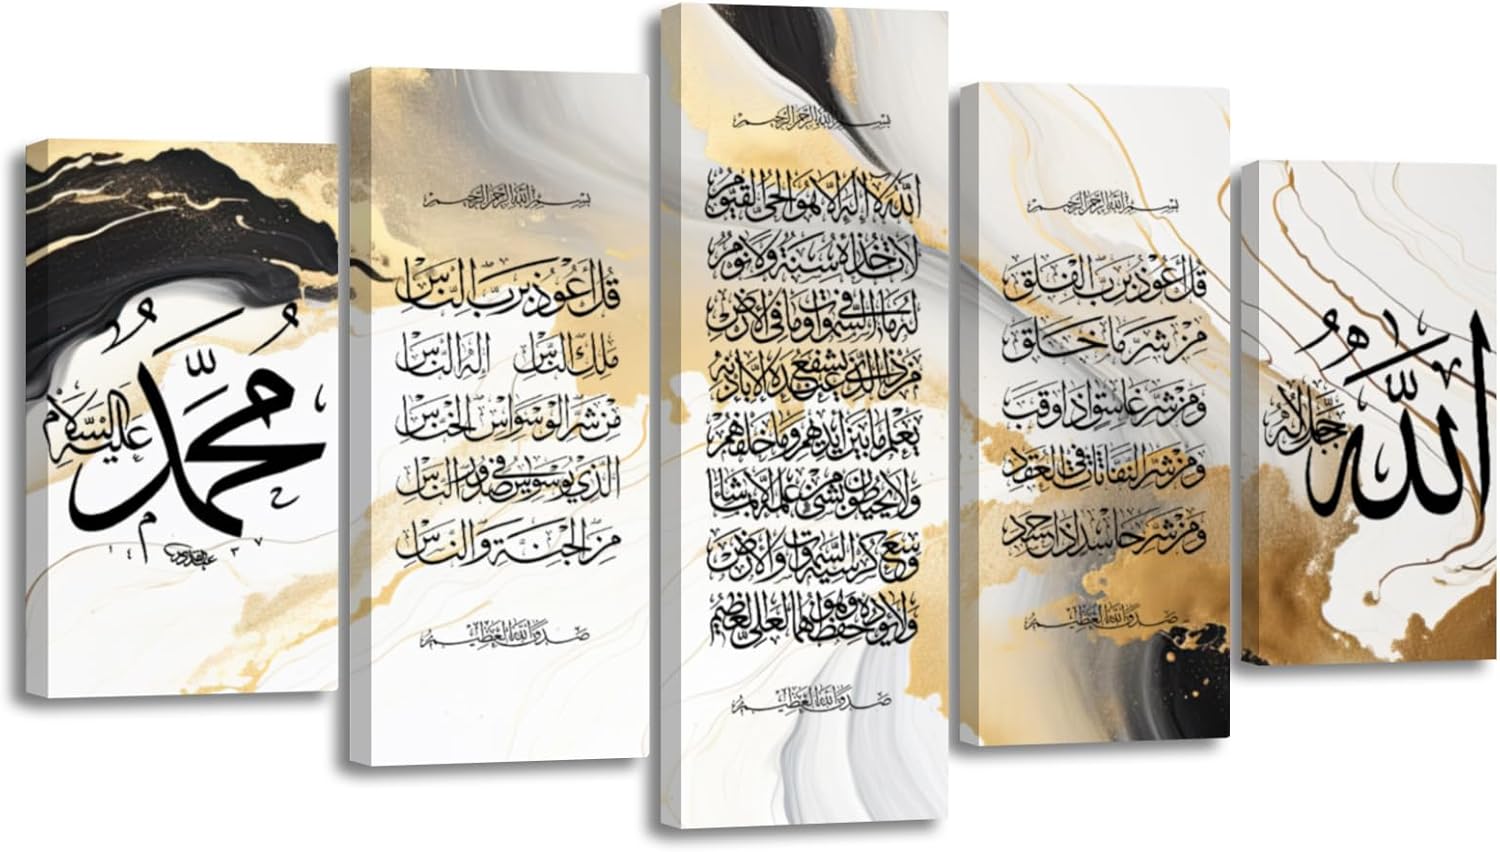 الله
جل جلاله
بسم الله الرحمن الرحيم
قل أعوذ برب الفلق
من شر ما خلق
ومن شر غاسق اذا وقب
ومن شر النفاثات في العقد
ومن شر حاسد اذا حسد
صدق الله العظيم
بسم الله الرحمن الرحيم
الله لا اله الا هو الحي القيوم
لا تاخذه سنة ولا نوم
له ما في السموات وما في الارض
من ذا الذي يشفع عنده الا باذنه
يعلم ما بين ايديهم وما خلفهم
ولا يحيطون بشئ من علمه الا بما شاء
وسع كرسيه السموات والارض
ولا يوده حفظهما وهو العلي العظيم
صدق الله العظيم
بسم الله الرحمن الرحيم
قل أعوذ برب الناس
ملك الناس اله الناس
من شر الوسواس الخناس
الذي يوسوس في صدور الناس
من الجنة والناس
صدق الله العظيم
محمد
عليه السلام
١٤٣٧